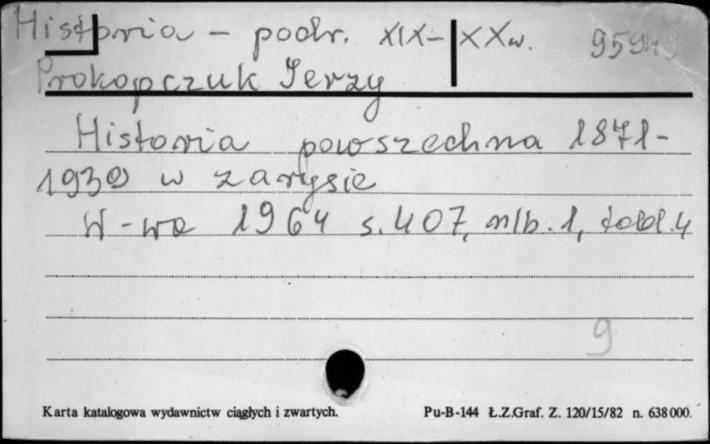 Historia - podr. XIX-XXw.
Prokopczuk Jerzy
Historia powszechna 1871-
1939 w zarysie
W-wa 1964 s. 407, nlb. 1, tabl. 4
9
Karta katalogowa wydawnictw ciągłych i zwartych. Pu-B-144 Ł.Z.Graf. Z. 120/15/82 n. 638 000.